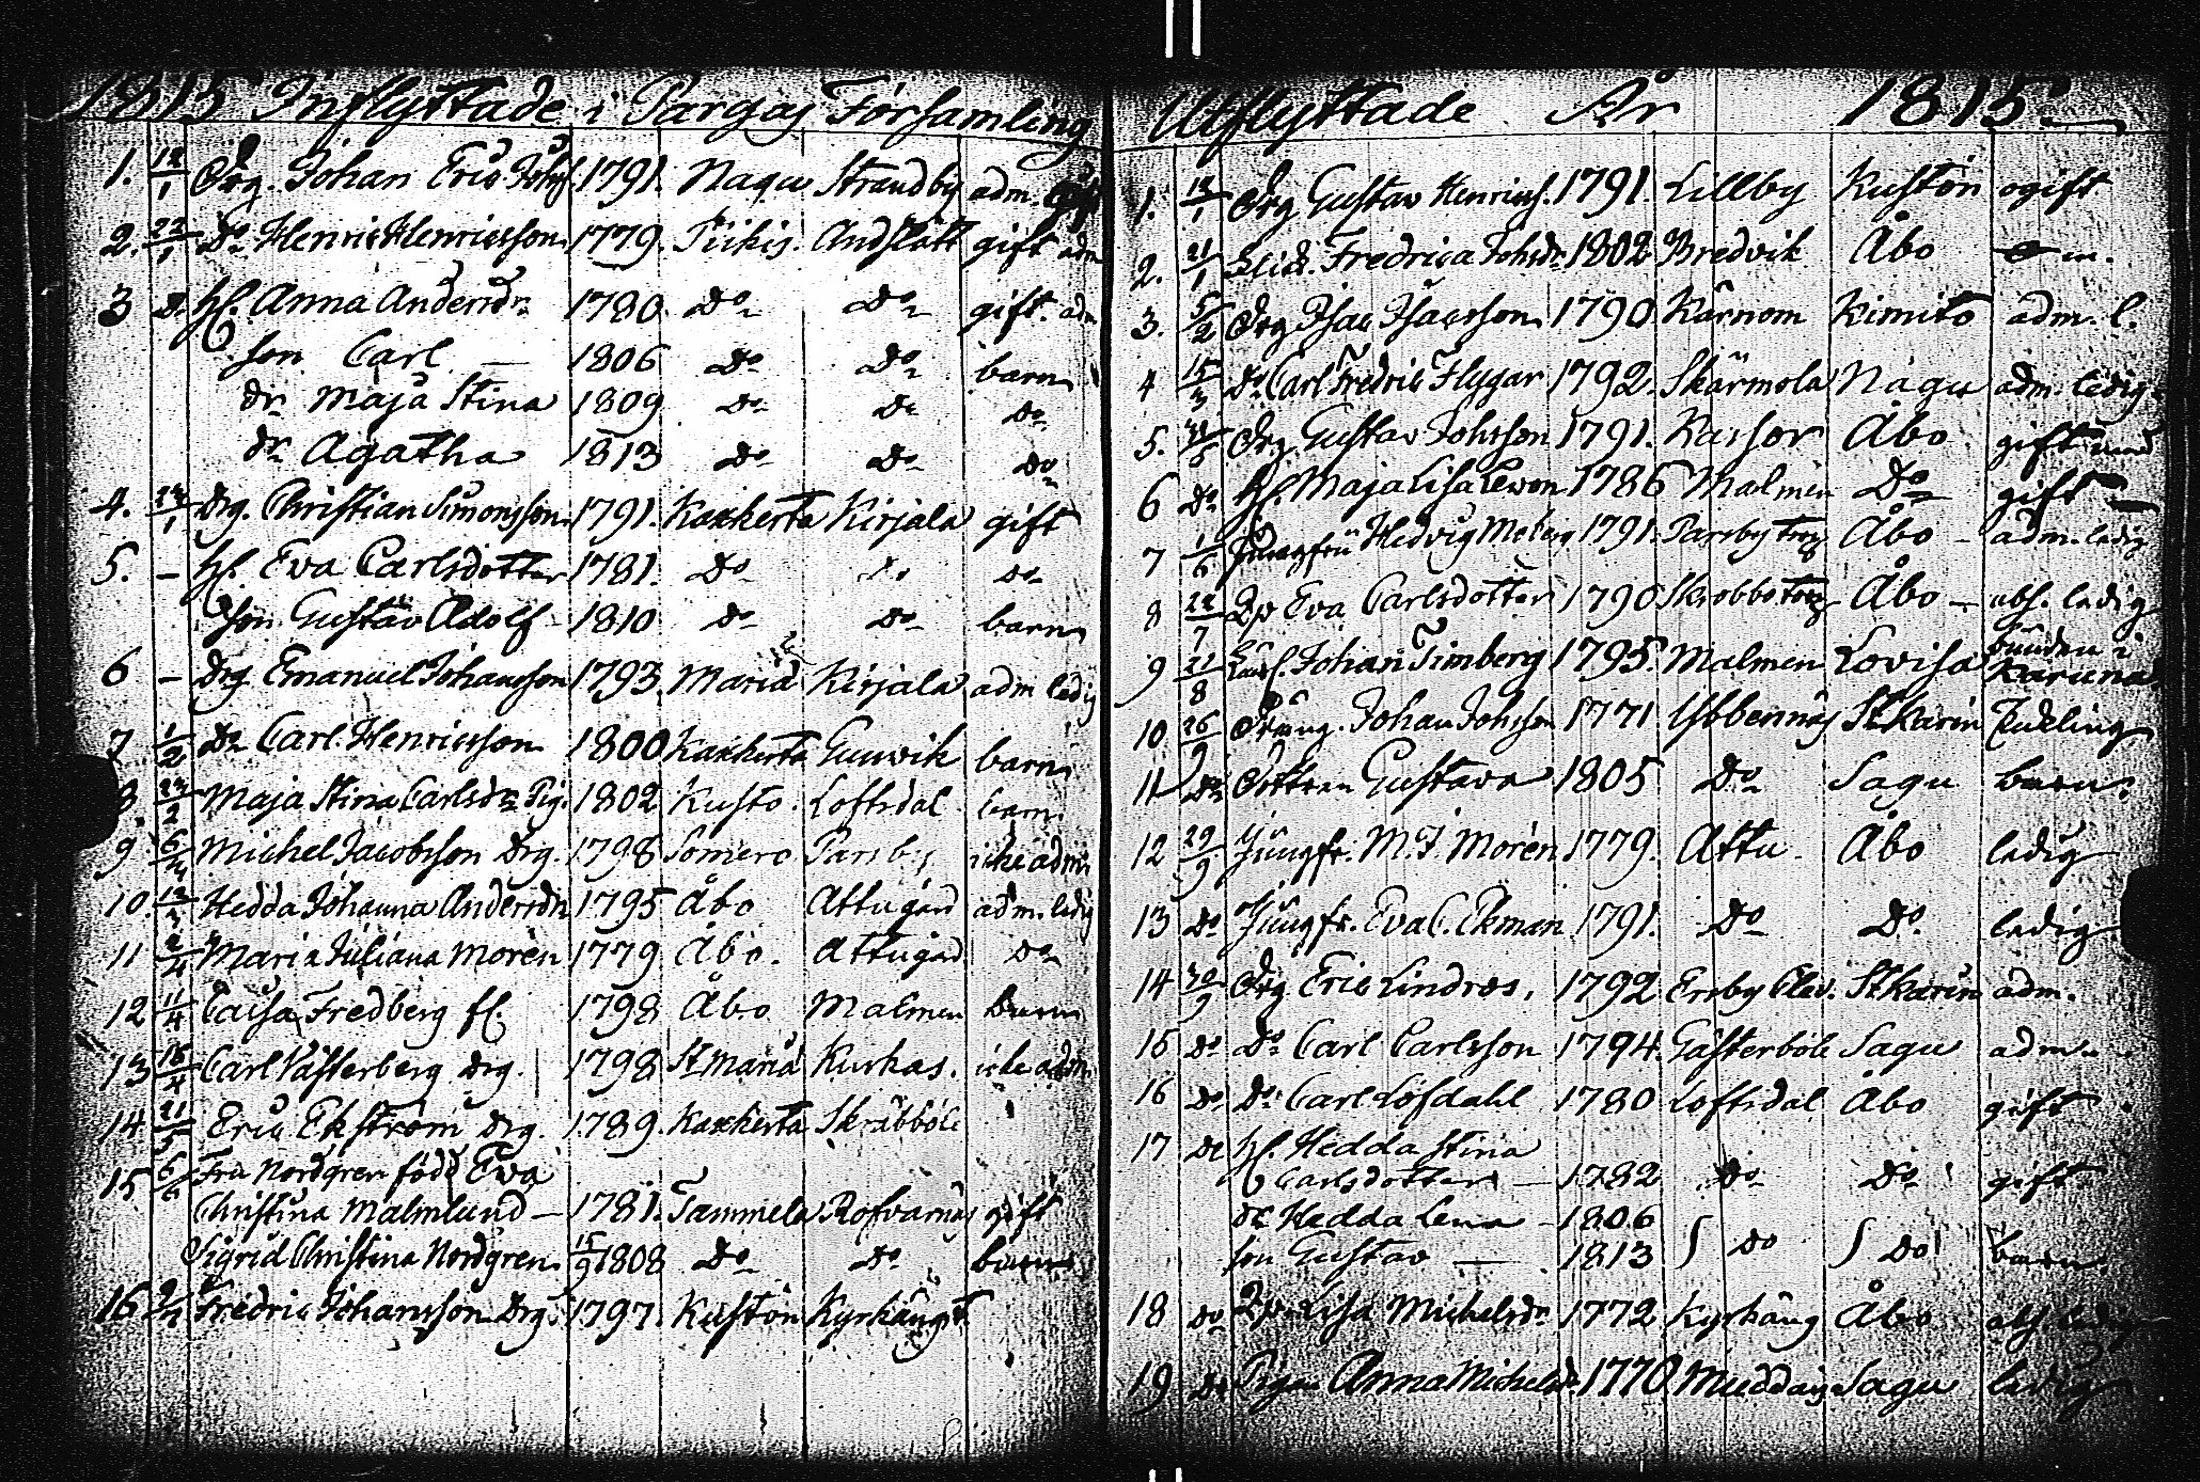 1815 Inflyttade i Pargas Församling
1. 12/1 Drg. Johan Eric Johs. 1791. Nagu Strandby adm.
2. 22/1 Do Henric Henricsson 1779. Piikis. Andslått gift adm
3 Do H. Anna Andersdr 1780. Do Do gift. adm
son Carl — 1806 Do Do barn
dr Maja Stina 1809 Do Do Do
dr Agatha 1813 Do Do Do
4. 1 Drg. Christian Simonsson 1791. Kakkerta Kirjala gift
5. — H. Eva Carlsdotter 1781. Do Do Do
son Gustav Adolf 1810 Do Do barn
6 — Drg Emanuel Johansson 1793. Maria Kirjala adm ledig
7 1/2 Do Carl Henricsson 1800 Kakkerta Gunvik barn
8 2 Maja Stina Carlsdr Pig. 1802 Kusto. Loftsdal barn.
9 6/4 Michel Jacobsson Drg. 1798 Somero Parsby icke adm.
10. Hedda Johanna Andersdr 1795 Åbo Attugård adm. ledig
11 2/4 Maria Juliana Morén 1779 Åbo. Attugård Do
12 11/4 Caisa Fredberg fl. 1798 Åbo Malmen barn
13 16/4 Carl Västerberg Drg. 1798 St Maria Kurkas. icke adm.
14 21/5 Eric Ekström Drg. 1789. Kakkerta Skräbböle
15 6/6 Fru Nordgren född Eva
Christina Malmlund — 1781. Tammela Rofvarnäs gift
Sigrid Christina Nordgren 15/9 1808 Do Do barn
16 9/7 Fredric Johansson Drg. 1797. Kustön Kyrkängst.
Utflyttade År 1815.
1. 1 Drg Gustav Henricss. 1791. Lillby Kustön ogift
2. 21/1 Fredrica Johsdr 1802 Bredvik Åbo
3. 5/2 Drg Isac Isacsson 1790. Kårnom Kimito adm. l.
4 15/3 Do Carl Fredric Flygar 1792. Skärmola Nagu adm. ledig.
5. Drg Gustav Johsson 1791. Kassor Åbo gift
6 Do H. Maja Lisa 1786 Malmen Do gift
7 1/6 Jungfru Hedvig Moberg 1791. Parsby torp Åbo — adm. ledig
8 22/7 Pp Eva Carlsdotter 1790 Skrobbo torp Åbo — abs. ledig
9 21/8 Johan Timberg 1795. Malmen Lovisa bunden i Karuna
10 26/9 Dräng. Johan Johsson 1771 Ybbernäs St Karin
11 Do Dottren Gustava 1805 Do Sagu barn.
12 29/9 Jungfr. M. J. Morén 1779. Attu. Åbo ledig
13 Do Jungfr. Eva C. Ekman 1791. Do Do. ledig
14 30/9 Drg Eric Lindros, 1792 Ersby St Karin adm.
15 Do Do Carl Carlsson 1794. Gästerböle Sagu adm.
16 Do Do Carl Löfdahl 1780 Loftsdal Åbo gift
17 Do H. Hedda Stina
Carlsdotter — 1782 Do Do gift
dr Hedda Lena — 1806
son Gustav — 1813 Do Do barn.
18 Do Lisa Michelsdr 1772 Kyrkäng Åbo abs. ledig
19 Do Pigan Anna Michelsdr 1770 Muddais Sagu ledig